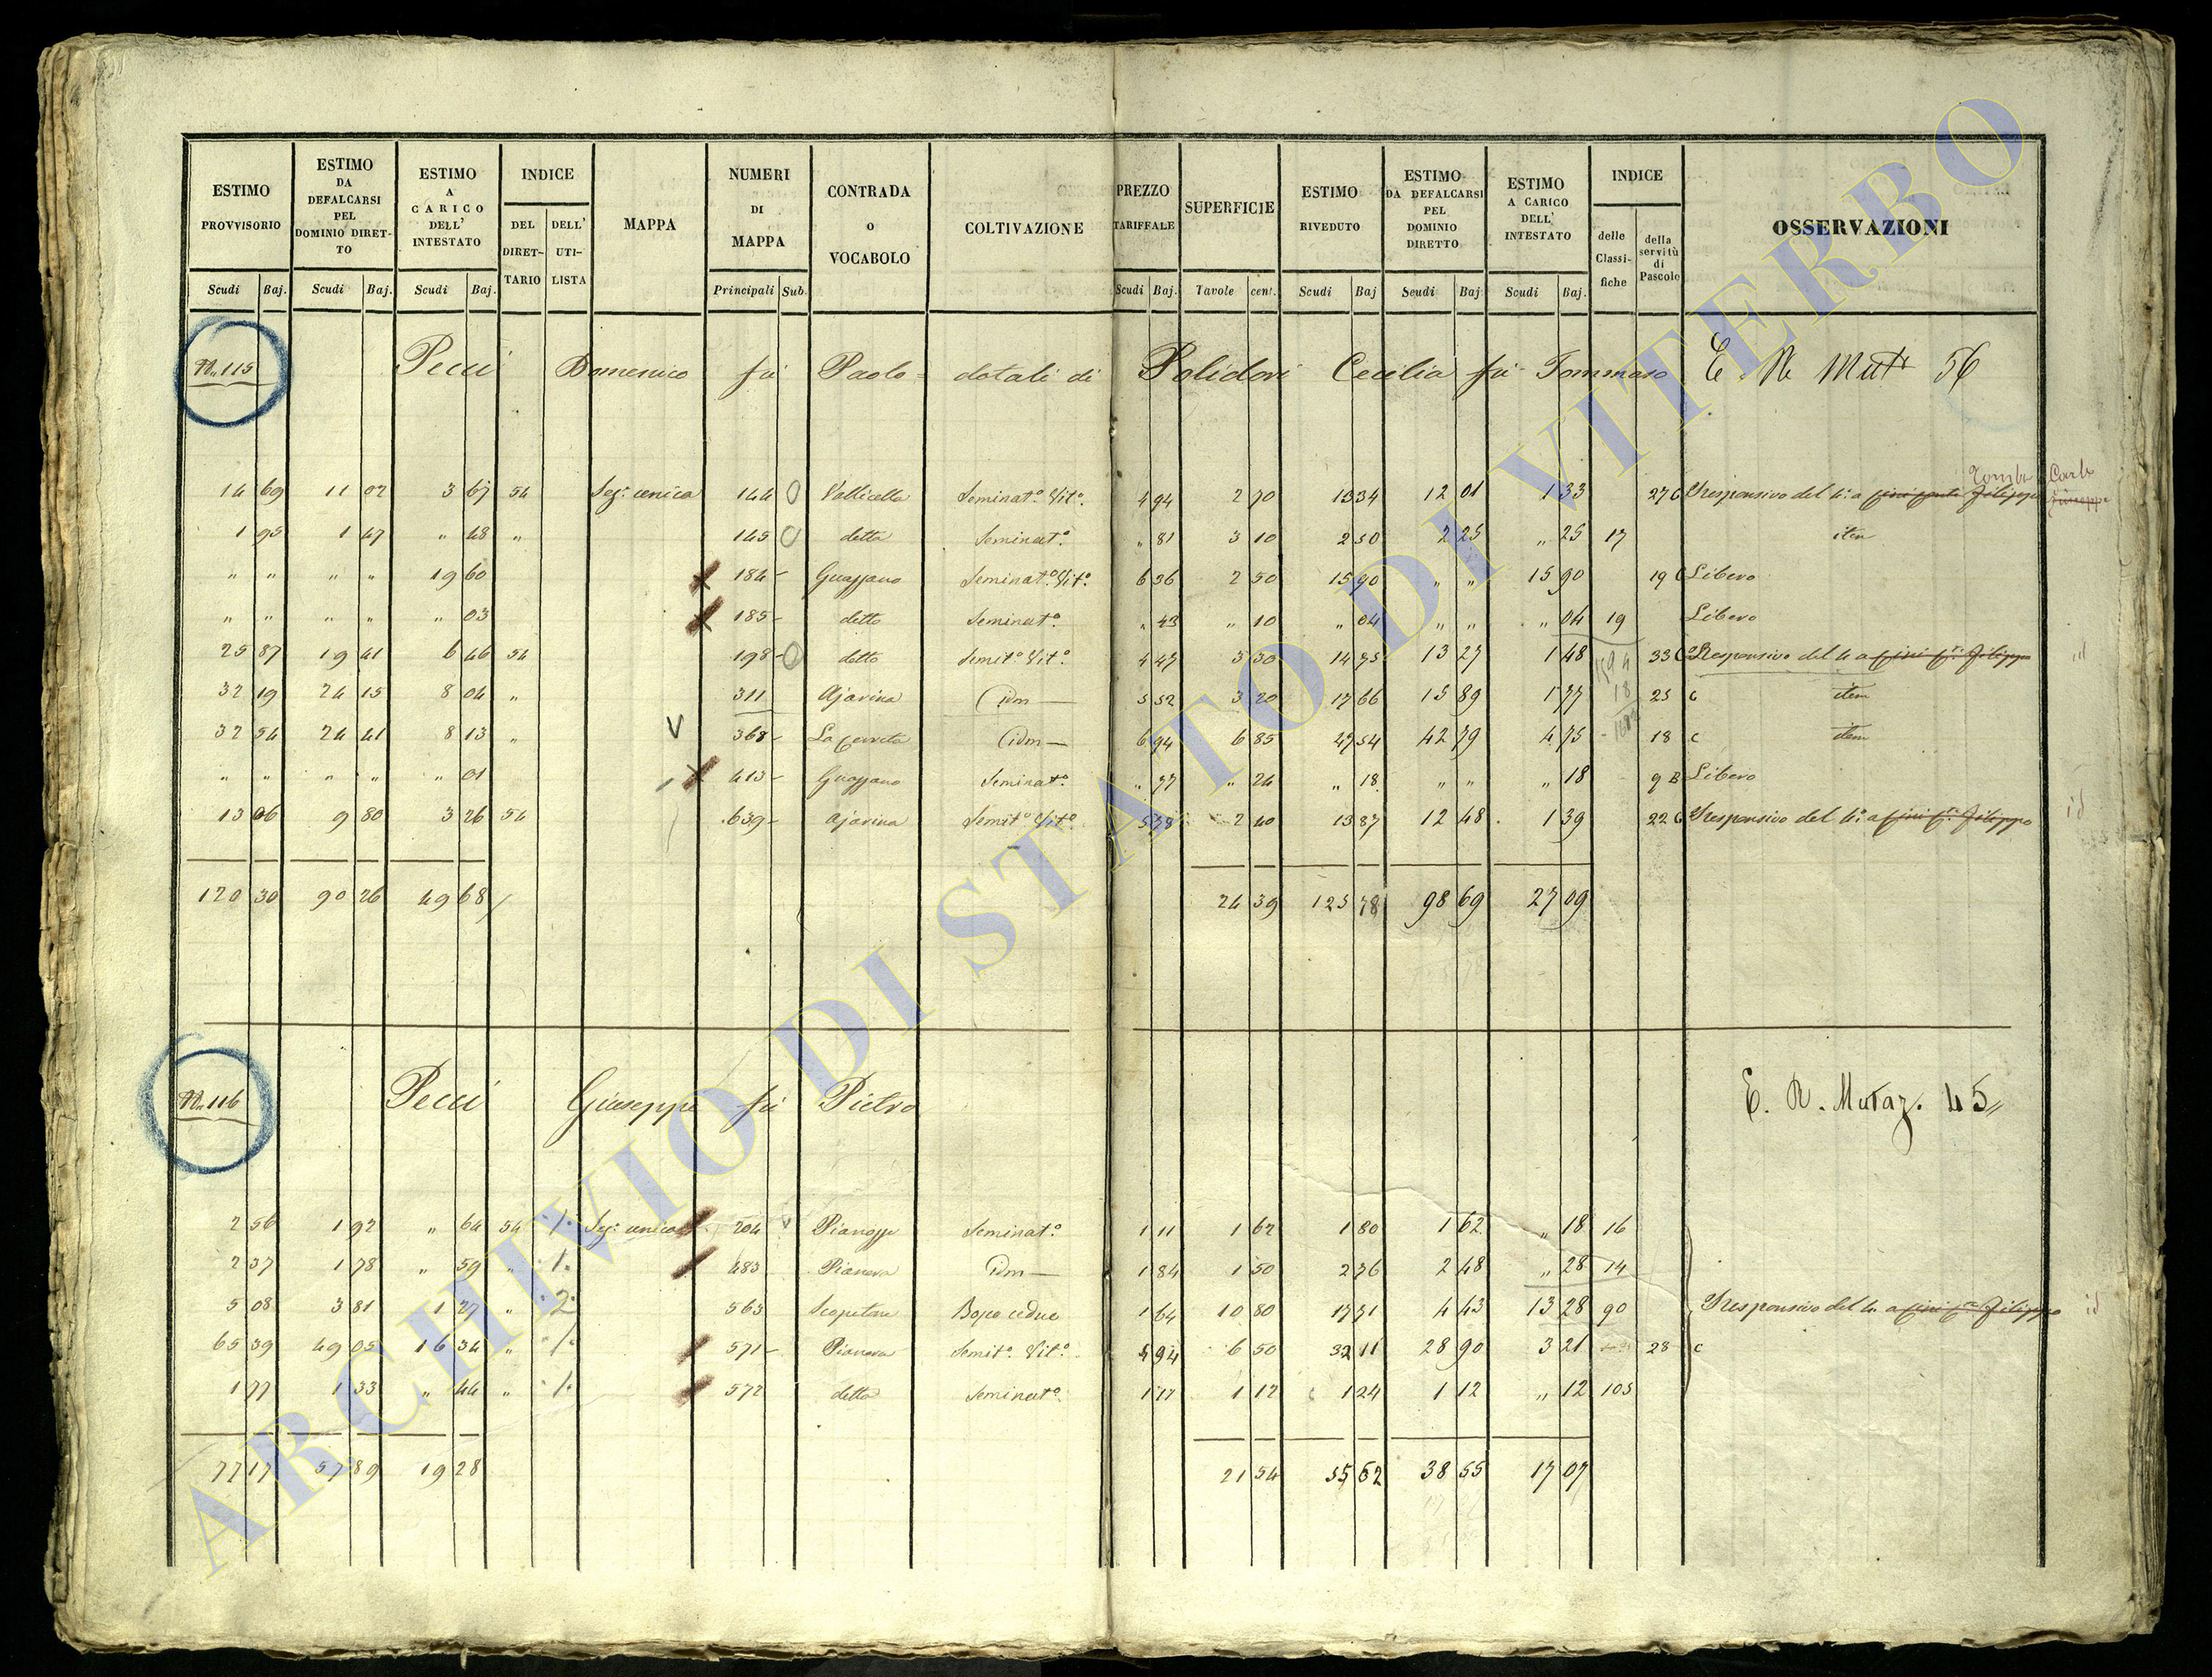 ESTIMO PROVVISORIO | ESTIMO DA DEFALCARSI PEL DOMINIO DIRETTO | ESTIMO A CARICO DELL' INTESTATO | INDICE | MAPPA | NUMERI DI MAPPA | CONTRADA o VOCABOLO | COLTIVAZIONE | PREZZO TARIFFALE | SUPERFICIE | ESTIMO RIVEDUTO | ESTIMO DA DEFALCARSI PEL DOMINIO DIRETTO | ESTIMO A CARICO DELL' INTESTATO | INDICE | OSSERVAZIONI
DEL DIRETTARIO | DELL' UTILISTA | delle Classifiche | della servitù di Pascolo
Scudi Baj. | Scudi Baj. | Scudi Baj. | Principali Sub. | Scudi Baj. | Tavole cent. | Scudi Baj | Scudi Baj | Scudi Baj.
N. 115 Pecci Domenico fù Paolo = dotali di Polidori Cecilia fù Tommaso E. R. Mut. 56
14 69 11 02 3 67 54 Sez.e unica 144 Vallicella Seminat.o Vit.o 4 94 2 70 13 34 12 01 1 33 27 C Responsivo del 4.o a
1 95 1 47 " 48 " 145 detta Seminat.o " 81 3 10 2 50 2 25 " 25 17 item
" " " " 19 60 184 Seminat.o Vit.o 6 36 2 50 15 90 " " 15 90 19 C Libero
" " " " " 03 185 detto Seminat.o " 43 " 10 " 04 " " " 04 19 Libero
25 87 19 41 6 46 54 198 detto Semit.o Vit.o 4 47 3 30 14 75 13 27 1 48 33 C Responsivo del 4 a id
32 19 24 15 8 04 " 311 Ajavina Idm 5 52 3 20 17 66 15 89 1 77 25 C item
32 54 24 41 8 13 " 368 La Cerreta Idm 6 94 6 85 47 54 42 79 4 75 18 C item
" " " " " 01 413 Seminat.o " 77 " 24 " 18 " " " 18 9 B Libero
13 06 9 80 3 26 54 639 Ajavina Semit.o Vit.o 5 78 2 40 13 87 12 48 1 39 22 C Responsivo del 4.o a id
120 30 90 26 49 68 24 39 125 78 98 69 27 09
N. 116 Pecci Giuseppe fù Pietro E. R. Mutaz. 45
2 56 1 92 " 64 54 1 Sez.e unica 204 Seminat.o 1 11 1 62 1 80 1 62 " 18 16
2 37 1 78 " 59 " 1 483 Pianera Idm 1 84 1 50 2 76 2 48 " 28 14
5 08 3 81 1 27 " 2 563 Bosco ceduo 1 64 10 80 17 71 4 43 13 28 90 Responsivo del 4 a id
65 39 49 05 16 34 " 1 571 Pianera Semit.o Vit.o 4 94 6 50 32 11 28 90 3 21 28 C
1 77 1 33 " 44 " 1 572 detta Seminat.o 1 11 1 12 1 24 1 12 " 12 105
77 17 57 89 19 28 21 54 55 62 38 55 17 07
ARCHIVIO DI STATO DI VITERBO